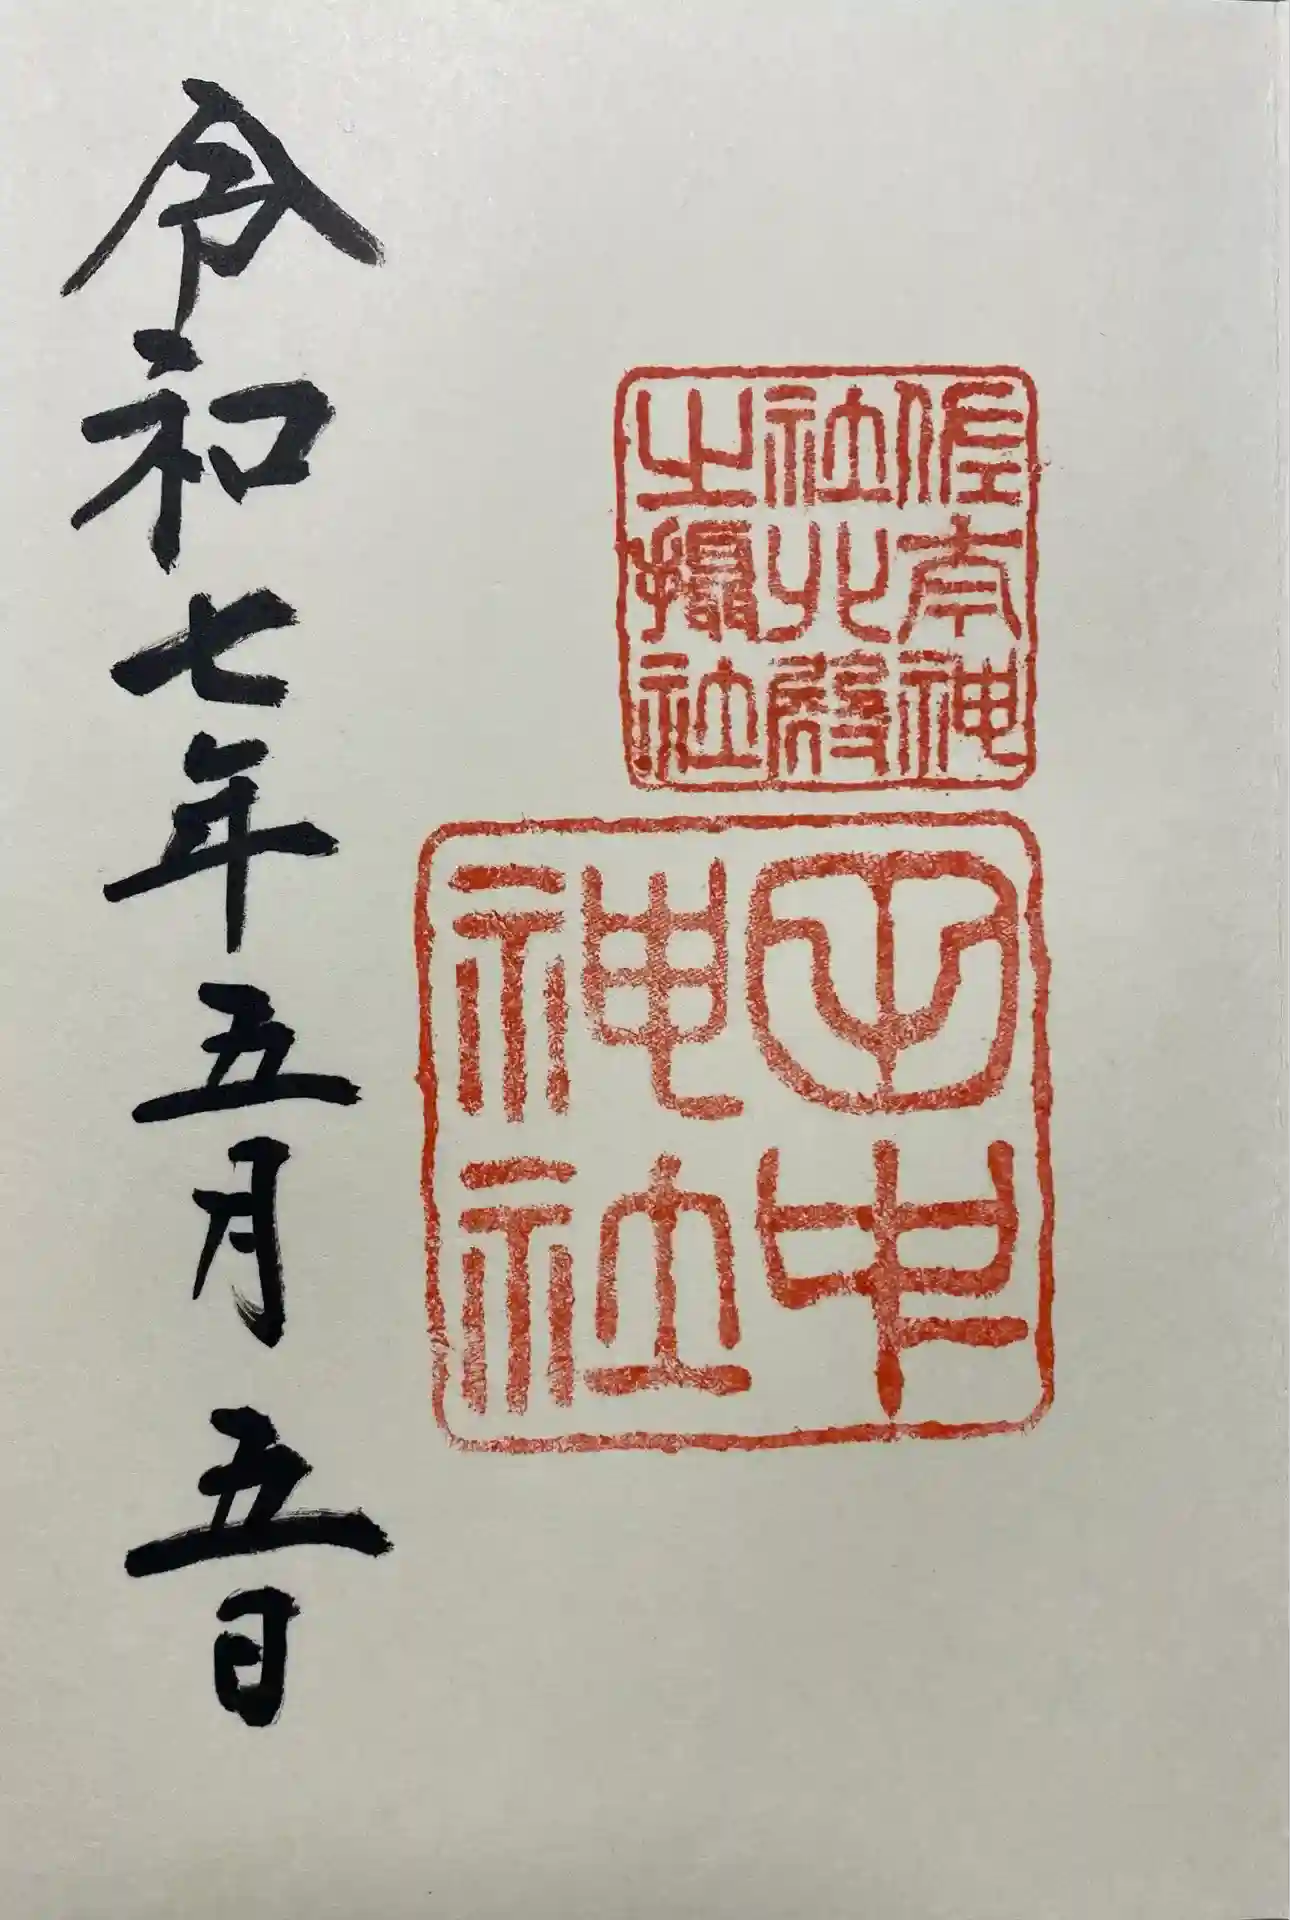 佐太神
社北殿
之攝社
田中
神社
令和七年五月五日